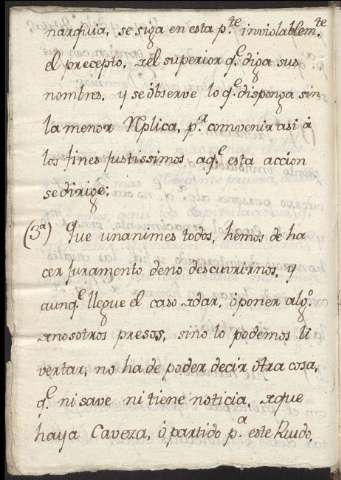 narquia, se siga en esta p.te inviolablem.te
el precepto, del superior q.e diga sus
nombres, y se observe lo q.e disponga sin
la menor Replica, p.a convenir asi à
los fines justissimos aq.e esta accion
se dirige:
(3.a) Que unanimes todos, hemos de ha
cer juramento deno descuvrirnos, y
aunq.e llegue el caso de dar, ò poner alg.o
de nosotros presos, sino lo podemos li
vertar, no ha de poder decir otra cosa,
q.e ni save ni tiene noticia, de que
haya Caveza, ò partido p.a este Ruido,